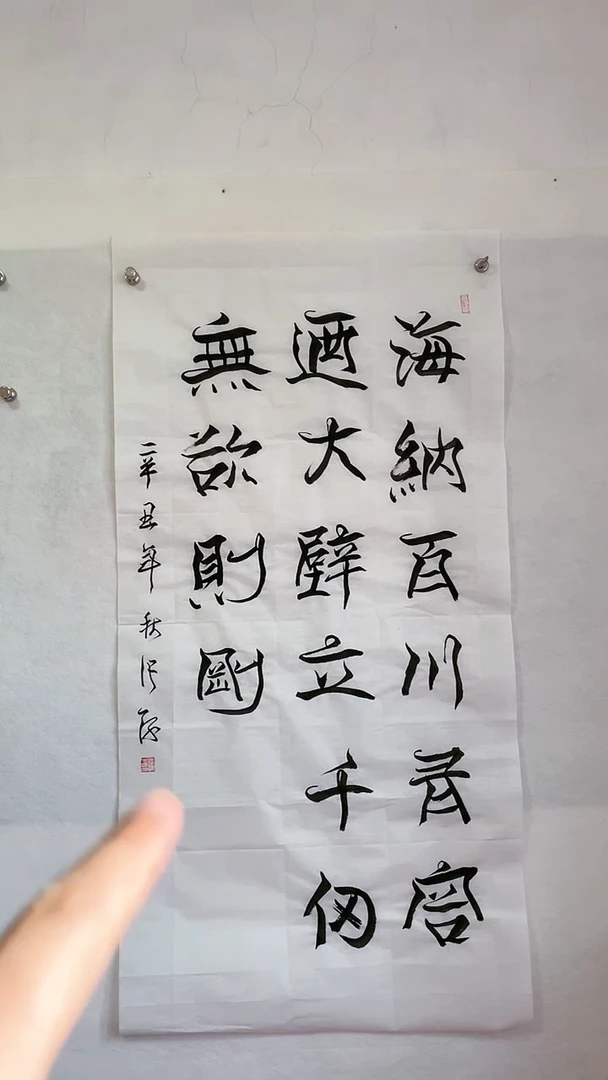 海納百川有容
迺大壁立千仞
無欲則剛
辛丑年秋